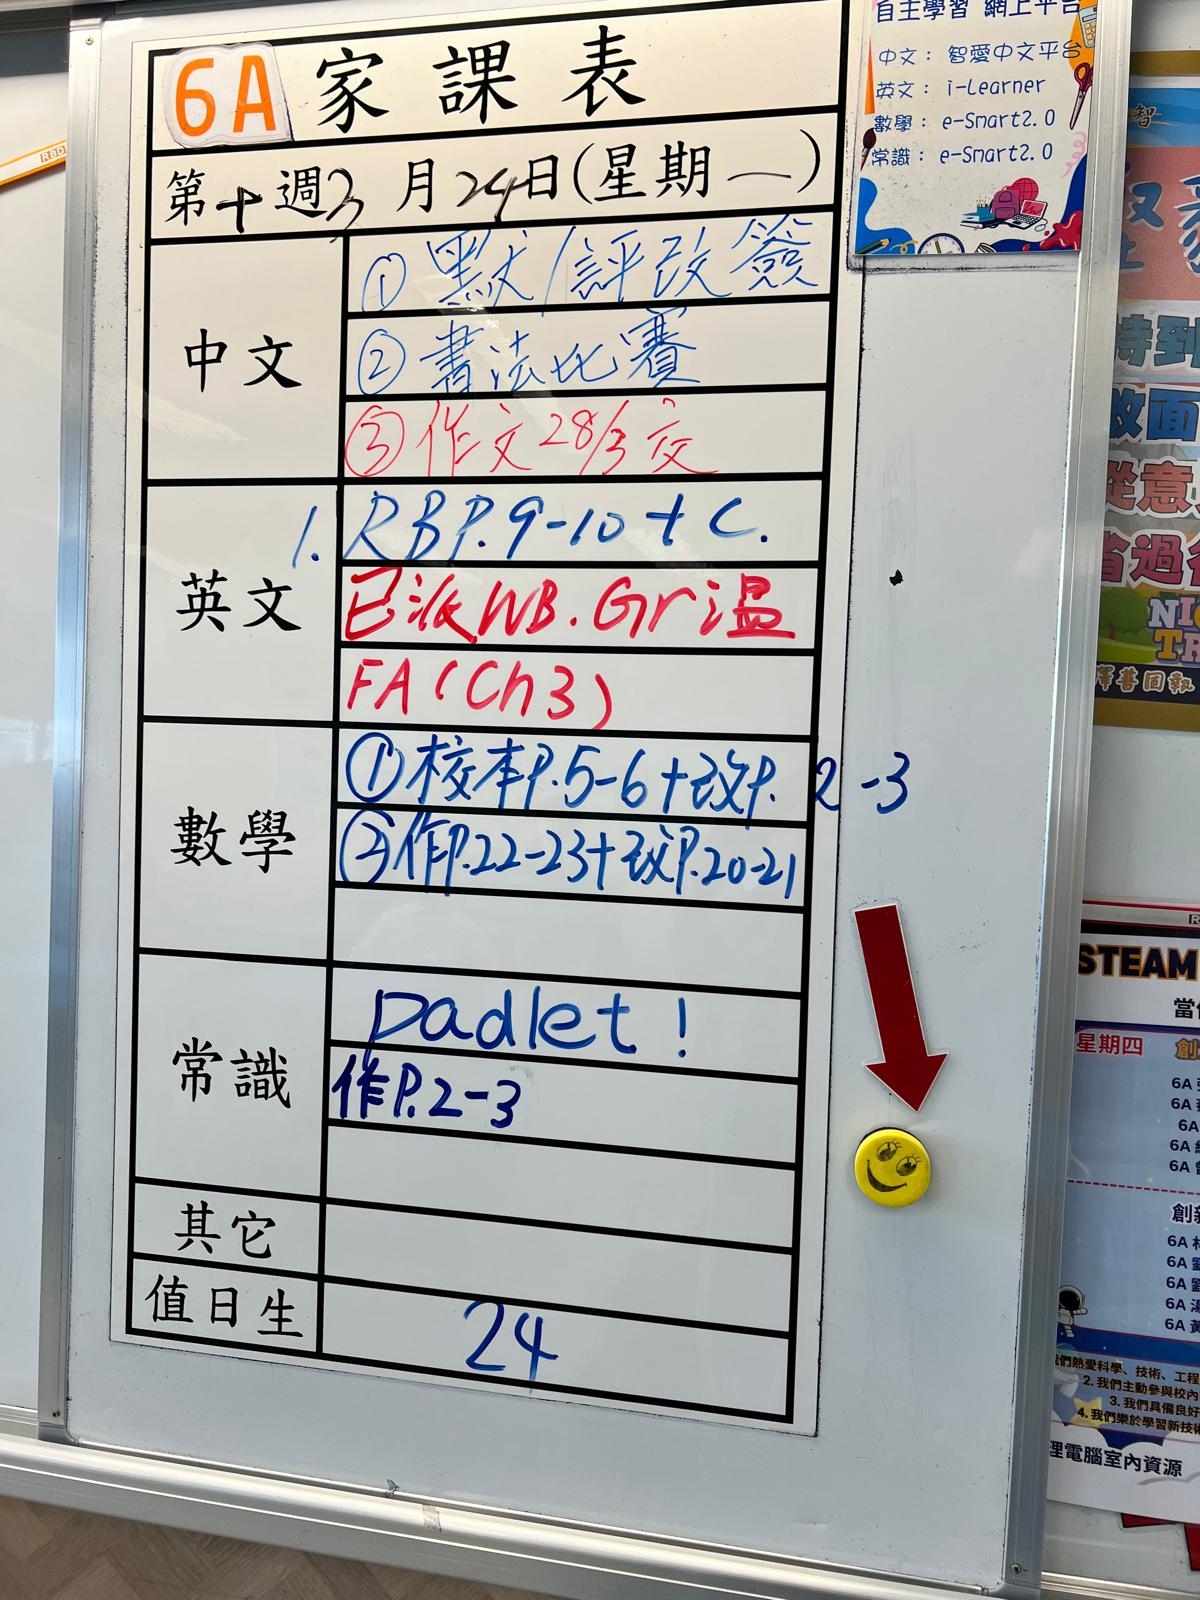 6A 家課表
第十週3月24日(星期一)
中文
① 默文/評改簽
② 書法比賽
③ 作文28/3交
英文
1. RBP.9-10+C.
已派WB.Gr溫
FA(Ch3)
數學
①校本P.5-6+改P.2-3
②作P.22-23+改P.20-21
常識
Padlet!
作P.2-3
其它
值日生
24
自主學習 網上平台
中文: 智愛中文平台
英文: i-Learner
數學: e-Smart2.0
常識: e-Smart2.0
智
持到
改面
從意
省過
擇善固執
STEAM
星期四
6A
6A
6A
6A
6A
創新
6A
6A
6A
6A
6A
們熱愛科學、技術、工程
2. 我們主動參與校內
3. 我們具備良好
4. 我們樂於學習新技術
理電腦室內資源